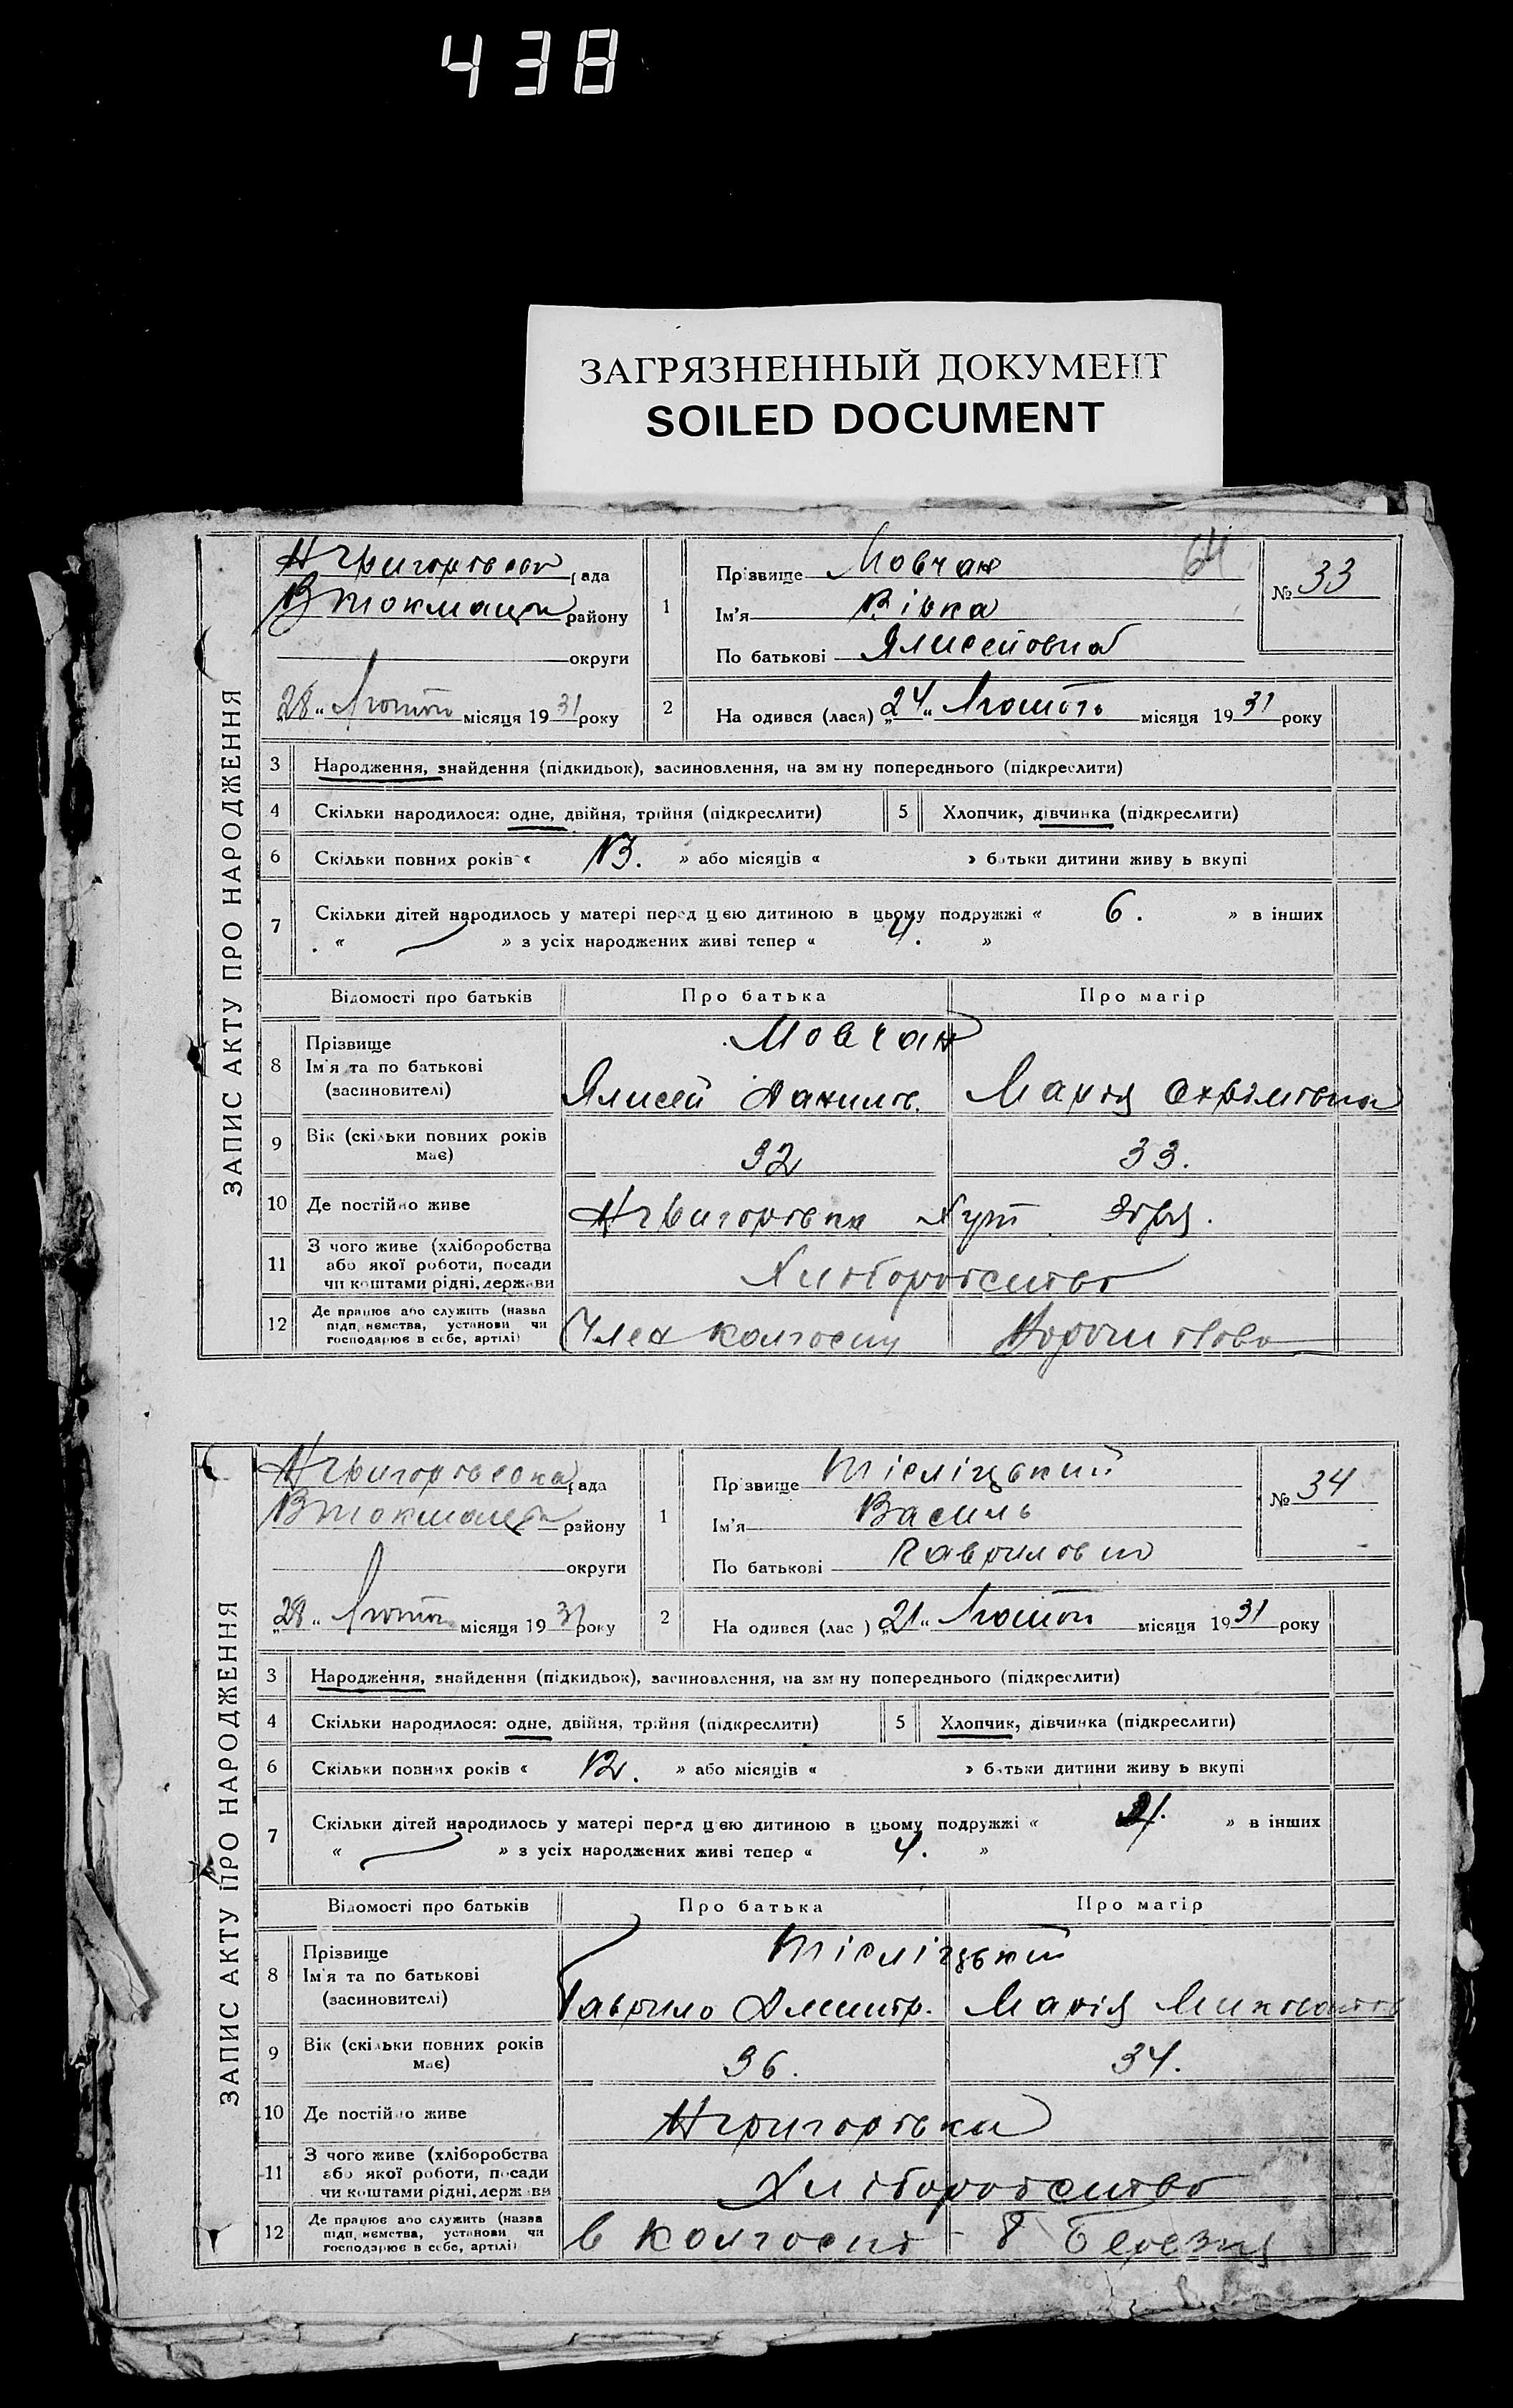 438
ЗАГРЯЗНЕННЫЙ ДОКУМЕНТ
SOILED DOCUMENT
ЗАПИС АКТУ ПРО НАРОДЖЕННЯ
рада
В токмацьк району
округи
"28" Лютого місяця 1931 року
1
Прізвище Мовчан
64
№ 33
Ім'я Вівка
По батькові Ялисейовна
2
На одився (лася) "24" Лютого місяця 1931 року
3 Народження, знайдення (підкидьок), засиновлення, на зм ну попереднього (підкреслити)
4 Скільки народилося: одне, двійня, трійня (підкреслити) 5 Хлопчик, дівчинка (підкреслити)
6 Скільки повних років « 13. » або місяців « » батьки дитини живу ь вкупі
7 Скільки дітей народилось у матері перед цєю дитиною в цьому подружжі « 6. » в інших
« » з усіх народжених живі тепер « 4. »
Відомості про батьків Про батька Про матір
8 Прізвище
Ім'я та по батькові
(засиновителі)
Мовчан
Ялисей Данилов. Марія Охрімівна
9 Вік (скільки повних років має) 32 33.
10 Де постійно живе Нгригорівка Хут Зоря.
11 З чого живе (хліборобства
або якої роботи, посади
чи коштами рідні, держави
Хліборобство
12 Де працює або служить (назва
підприємства, установи чи
господарює в себе, артілі)
Член колгоспу Ворошилова
ЗАПИС АКТУ ПРО НАРОДЖЕННЯ
Нгригорівська рада
В токмацьк району
округи
"28" Лютого місяця 1931 року
1
Прізвище Тісліцький
№ 34
Ім'я Василь
По батькові Гаврилов
2
На одився (лас ) "21" Лютого місяця 1931 року
3 Народження, знайдення (підкидьок), засиновлення, на зм ну попереднього (підкреслити)
4 Скільки народилося: одне, двійня, трійня (підкреслити) 5 Хлопчик, дівчинка (підкреслити)
6 Скільки повних років « 12. » або місяців « » батьки дитини живу ь вкупі
7 Скільки дітей народилось у матері перед цєю дитиною в цьому подружжі « » в інших
« » з усіх народжених живі тепер « 4. »
Відомості про батьків Про батька Про матір
8 Прізвище
Ім'я та по батькові
(засиновителі)
Тісліцький
Гаврило Дмитр. Марія
9 Вік (скільки повних років має) 36. 34.
10 Де постійно живе Нгригорівка
11 З чого живе (хліборобства
або якої роботи, посади
чи коштами рідні, держави
Хліборобство
12 Де працює або служить (назва
підприємства, установи чи
господарює в себе, артілі)
в колгоспі 8 Березня